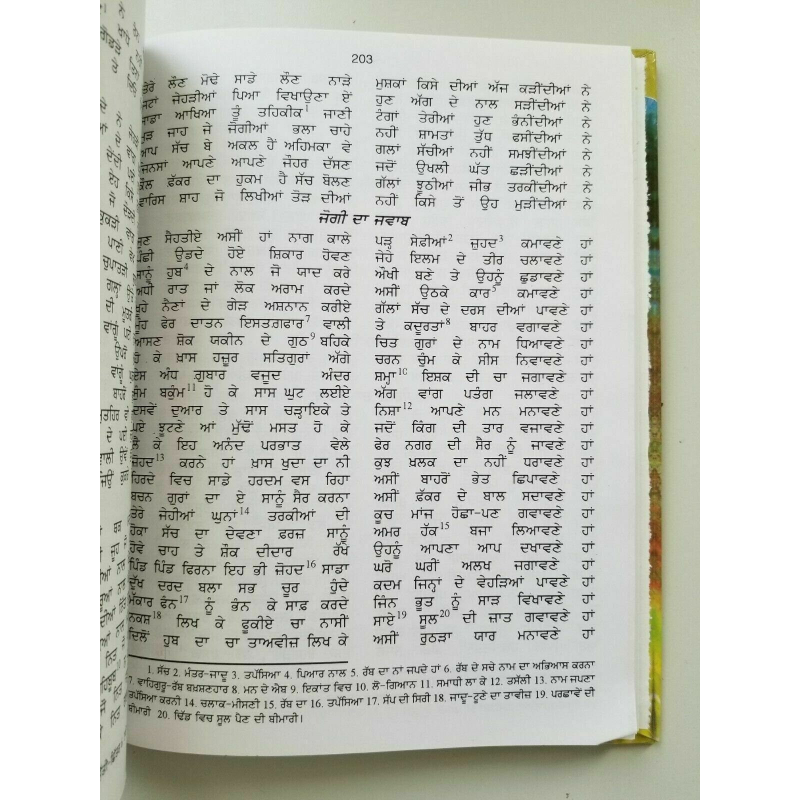 203
ਤੇਰੇ ਲੌਣ ਮੋਢੇ ਸਾਡੇ ਲੌਣ ਨਾੜੇ ਮੁਸ਼ਕਾਂ ਕਿਸੇ ਦੀਆਂ ਅੱਜ ਕੜੀਂਦੀਆਂ ਨੇ
ਜਟਾਂ ਜੇਹੜੀਆਂ ਪਿਆ ਵਿਖਾਉਣਾ ਏਂ ਹੁਣ ਅੱਗ ਦੇ ਨਾਲ ਸੜੀਂਦੀਆਂ ਨੇ
ਸਾਡਾ ਆਖਿਆ ਤੂੰ ਤਹਿਕੀਕ1 ਜਾਣੀ ਟੰਗਾਂ ਤੇਰੀਆਂ ਹੁਣ ਭੰਨੀਂਦੀਆਂ ਨੇ
ਮੁੜ ਜਾਹ ਜੇ ਜੋਗੀਆਂ ਭਲਾ ਚਾਹੇ ਨਹੀਂ ਸ਼ਾਮਤਾਂ ਤੁੱਧ ਫਸੀਂਦੀਆਂ ਨੇ
ਆਪ ਸੱਚ ਬੇ ਅਕਲ ਹੈਂ ਅਹਿਮਕਾ ਵੇ ਗਲਾਂ ਸੱਚੀਆਂ ਨਹੀਂ ਸਮਝੀਂਦੀਆਂ ਨੇ
ਜਿਨਸਾਂ ਆਪਣੇ ਆਪਣੇ ਜੌਹਰ ਦੱਸਣ ਜਦੋਂ ਉਖਲੀ ਘੱਤ ਛੜੀਂਦੀਆਂ ਨੇ
ਕੌਲ ਫੱਕਰ ਦਾ ਹੁਕਮ ਹੈ ਸੱਚ ਬੋਲਣ ਗੱਲਾਂ ਝੂਠੀਆਂ ਜੀਭ ਤਰਕੀਂਦੀਆਂ ਨੇ
ਵਾਰਿਸ ਸ਼ਾਹ ਜੋ ਲਿਖੀਆਂ ਤੋੜ ਦੀਆਂ ਨਹੀਂ ਕਿਸੇ ਤੋਂ ਉਹ ਮੁੜੀਂਦੀਆਂ ਨੇ
ਜੋਗੀ ਦਾ ਜਵਾਬ
ਸੁਣ ਸੈਹਤੀਏ ਅਸੀਂ ਹਾਂ ਨਾਗ ਕਾਲੇ ਪੜ੍ਹ ਸੇਫ਼ੀਆਂ2 ਜ਼ੁਹਦ3 ਕਮਾਵਣੇ ਹਾਂ
ਪੰਛੀ ਉਡਦੇ ਹੋਏ ਸ਼ਿਕਾਰ ਹੋਵਣ ਜੇਹੇ ਇਲਮ ਦੇ ਤੀਰ ਚਲਾਵਣੇ ਹਾਂ
ਸਾਨੂੰ ਹੁਬ4 ਦੇ ਨਾਲ ਜੋ ਯਾਦ ਕਰੇ ਔਖੀ ਬਣੇ ਤੇ ਉਹਨੂੰ ਛੁਡਾਵਣੇ ਹਾਂ
ਅਧੀ ਰਾਤ ਜਾਂ ਲੋਕ ਅਰਾਮ ਕਰਦੇ ਅਸੀਂ ਉਠਕੇ ਕਾਰ5 ਕਮਾਵਣੇ ਹਾਂ
ਖੂਹੇ ਨੈਣਾਂ ਦੇ ਗੇੜ ਅਸ਼ਨਾਨ ਕਰੀਏ ਗੱਲਾਂ ਸੱਚ ਦੇ ਦਰਸ ਦੀਆਂ ਪਾਵਣੇ ਹਾਂ
ਮੂੰਹ ਫੇਰ ਦਾਤਨ ਇਸਤਗ਼ਫਾਰ7 ਵਾਲੀ ਤੇ ਕਦੂਰਤਾਂ8 ਬਾਹਰ ਵਗਾਵਣੇ ਹਾਂ
ਆਸਣ ਸ਼ੋਕ ਯਕੀਨ ਦੇ ਗੁਠ9 ਬਹਿਕੇ ਚਿਤ ਗੁਰਾਂ ਦੇ ਨਾਮ ਧਿਆਵਣੇ ਹਾਂ
ਹੋ ਕੇ ਖ਼ਾਸ ਹਜ਼ੂਰ ਸਤਿਗੁਰਾਂ ਅੱਗੇ ਚਰਨ ਚੁੰਮ ਕੇ ਸੀਸ ਨਿਵਾਵਣੇ ਹਾਂ
ਏਸ ਅੰਧ ਗੁਬਾਰ ਵਜੂਦ ਅੰਦਰ ਸ਼ਮ੍ਹਾ10 ਇਸ਼ਕ ਦੀ ਚਾ ਜਗਾਵਣੇ ਹਾਂ
ਸੁੰਮ ਬਕੁੰਮ11 ਹੋ ਕੇ ਸਾਸ ਘੁਟ ਲਈਏ ਅੱਗ ਵਾਂਗ ਪਤੰਗ ਜਲਾਵਣੇ ਹਾਂ
ਦਸਵੇਂ ਦੁਆਰ ਤੇ ਸਾਸ ਚੜ੍ਹਾਇਕੇ ਤੇ ਨਿਸ਼ਾ12 ਆਪਣੇ ਮਨ ਮਨਾਵਣੇ ਹਾਂ
ਪਏ ਝੂਟਣੇ ਆਂ ਮੁੱਢੋਂ ਮਸਤ ਹੋ ਕੇ ਜਦੋਂ ਕਿੰਗ ਦੀ ਤਾਰ ਵਜਾਵਣੇ ਹਾਂ
ਲੈ ਕੇ ਇਹ ਅਨੰਦ ਪਰਭਾਤ ਵੇਲੇ ਫੇਰ ਨਗਰ ਦੀ ਸੈਰ ਨੂੰ ਜਾਵਣੇ ਹਾਂ
ਜ਼ੋਹਦ13 ਕਰਨੇ ਹਾਂ ਖ਼ਾਸ ਖੁਦਾ ਦਾ ਨੀ ਕੁਝ ਖ਼ਲਕ ਦਾ ਨਹੀਂ ਧਰਾਵਣੇ ਹਾਂ
ਹਿਰਦੇ ਵਿਚ ਸਾਡੇ ਹਰਦਮ ਵਸ ਰਿਹਾ ਅਸੀਂ ਬਾਹਰੋਂ ਭੇਤ ਛਿਪਾਵਣੇ ਹਾਂ
ਬਚਨ ਗੁਰਾਂ ਦਾ ਏ ਸਾਨੂੰ ਸੈਰ ਕਰਨਾ ਅਸੀਂ ਫ਼ੱਕਰ ਦੇ ਬਾਲ ਸਦਾਵਣੇ ਹਾਂ
ਤੇਰੇ ਜੇਹੀਆਂ ਘੁਨਾਂ14 ਤਰਕੀਆਂ ਦੀ ਕੂਚ ਮਾਂਜ ਹੋਛਾ-ਪਣ ਗਵਾਵਣੇ ਹਾਂ
ਹੋਕਾ ਸੱਚ ਦਾ ਦੇਵਣਾ ਫ਼ਰਜ਼ ਸਾਨੂੰ ਅਮਰ ਹੱਕ15 ਬਜਾ ਲਿਆਵਣੇ ਹਾਂ
ਹੋਵੇ ਚਾਹ ਤੇ ਸ਼ੌਕ ਦੀਦਾਰ ਰੱਖੇ ਉਹਨੂੰ ਆਪਣਾ ਆਪ ਦਖਾਵਣੇ ਹਾਂ
ਪਿੰਡ ਪਿੰਡ ਫਿਰਨਾ ਇਹ ਭੀ ਜ਼ੋਹਦ16 ਸਾਡਾ ਘਰੋ ਘਰੀਂ ਅਲਖ ਜਗਾਵਣੇ ਹਾਂ
ਦੁੱਖ ਦਰਦ ਬਲਾ ਸਭ ਚੂਰ ਹੁੰਦੇ ਕਦਮ ਜਿਨ੍ਹਾਂ ਦੇ ਵੇਹੜਿਆਂ ਪਾਵਣੇ ਹਾਂ
ਮੱਕਾਰ ਫੇਨ17 ਨੂੰ ਭੰਨ ਕੇ ਸਾਫ਼ ਕਰਦੇ ਜਿੰਨ ਭੂਤ ਨੂੰ ਸਾੜ ਵਿਖਾਵਣੇ ਹਾਂ
ਨਕਸ਼18 ਲਿਖ ਕੇ ਫੂਕੀਏ ਚਾ ਨਾਸੀਂ ਸਾਏ19 ਸੂਲ20 ਦੀ ਜ਼ਾਤ ਗਵਾਵਣੇ ਹਾਂ
ਦਿਲੋਂ ਹੁਬ ਦਾ ਚਾ ਤਾਅਵੀਜ਼ ਲਿਖ ਕੇ ਅਸੀਂ ਰੁਠੜਾ ਯਾਰ ਮਨਾਵਣੇ ਹਾਂ
1. ਸੱਚ 2. ਮੰਤਰ-ਜਾਦੂ 3. ਤਪੱਸਿਆ 4. ਪਿਆਰ ਨਾਲ 5. ਰੱਬ ਦਾ ਨਾਂ ਜਪਦੇ ਹਾਂ 6. ਰੱਬ ਦੇ ਸਚੇ ਨਾਮ ਦਾ ਅਭਿਆਸ ਕਰਨਾ
7. ਵਾਹਿਗੁਰੂ-ਰੱਬ ਬਖ਼ਸ਼ਣਹਾਰ 8. ਮਨ ਦੇ ਐਬ 9. ਇਕਾਂਤ ਵਿਚ 10. ਲੋ-ਗਿਆਨ 11. ਸਮਾਧੀ ਲਾ ਕੇ 12. ਤਸੱਲੀ 13. ਨਾਮ ਜਪਣਾ
ਤਪੱਸਿਆ ਕਰਨੀ 14. ਚਲਾਕ-ਮੀਸਣੀ 15. ਰੱਬ ਦਾ 16. ਤਪੱਸਿਆ 17. ਸੱਪ ਦੀ ਸਿਰੀ 18. ਜਾਦੂ-ਟੂਣੇ ਦਾ ਤਾਵੀਜ਼ 19. ਪਰਛਾਵੇਂ ਦੀ
ਬੀਮਾਰੀ 20. ਢਿੱਡ ਵਿਚ ਸੂਲ ਪੈਣ ਦੀ ਬੀਮਾਰੀ।